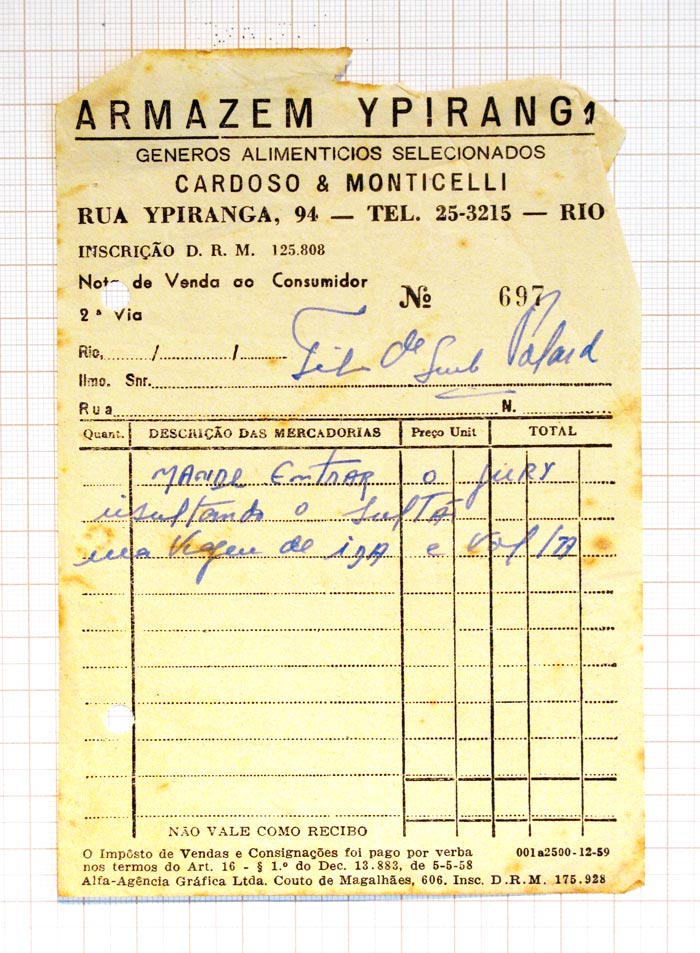 ARMAZEM YPIRANGA
GENEROS ALIMENTICIOS SELECIONADOS
CARDOSO & MONTICELLI
RUA YPIRANGA, 94 — TEL. 25-3215 — RIO
INSCRIÇÃO D. R. M. 125.808
Nota de Venda ao Consumidor
Nº 697
2ª Via
Rio, / /
de
Ilmo. Snr.
Rua N.
Quant. DESCRIÇÃO DAS MERCADORIAS Preço Unit TOTAL
MANDE ENTRAR o JURY
o SULTÃ
uma viagem de iDA e VOLTA
NÃO VALE COMO RECIBO
O Impôsto de Vendas e Consignações foi pago por verba 001a2500-12-59
nos termos do Art. 16 - § 1.º do Dec. 13.883, de 5-5-58
Alfa-Agência Gráfica Ltda. Couto de Magalhães, 606. Insc. D.R.M. 175.928